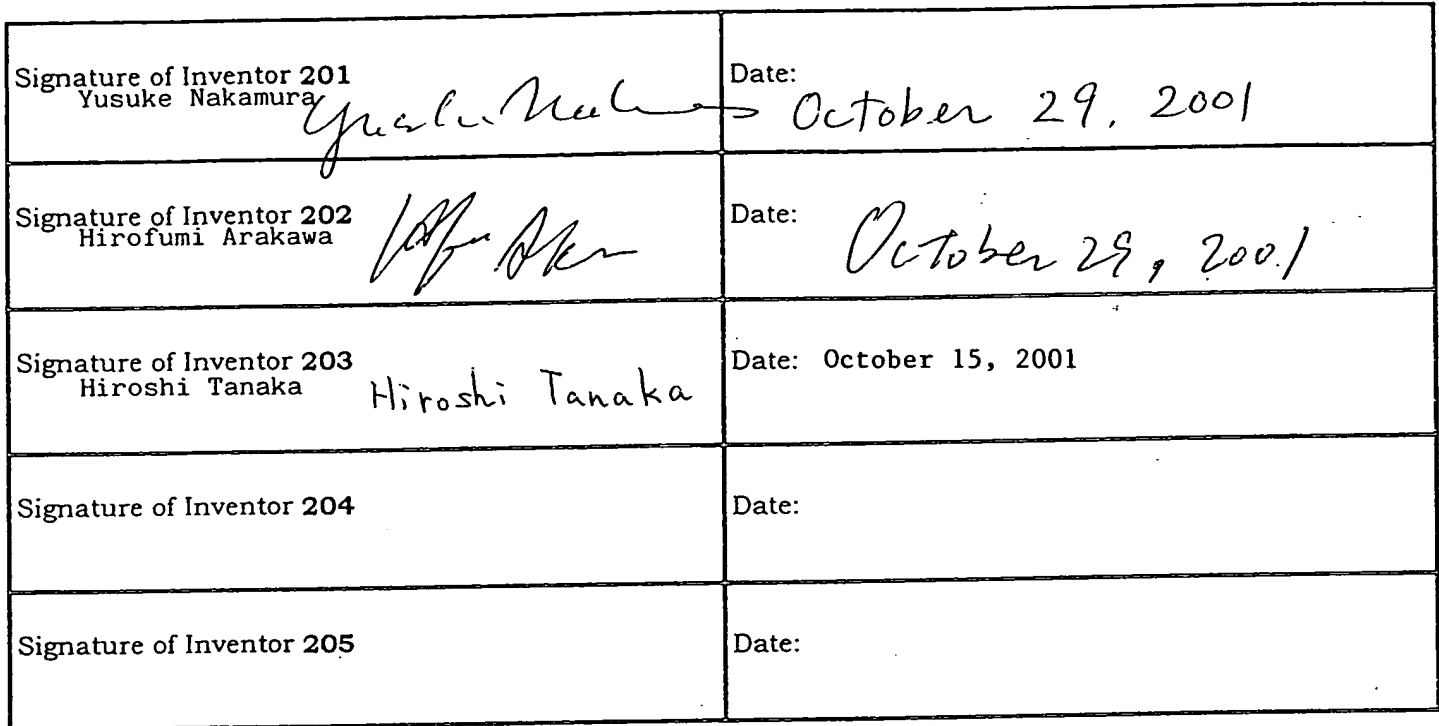 Signature of Inventor 201
Yusuke Nakamura
Date:
October 29, 2001
Signature of Inventor 202
Hirofumi Arakawa
Date:
October 29, 2001
Signature of Inventor 203
Hiroshi Tanaka
Hiroshi Tanaka
Date: October 15, 2001
Signature of Inventor 204
Date:
Signature of Inventor 205
Date: